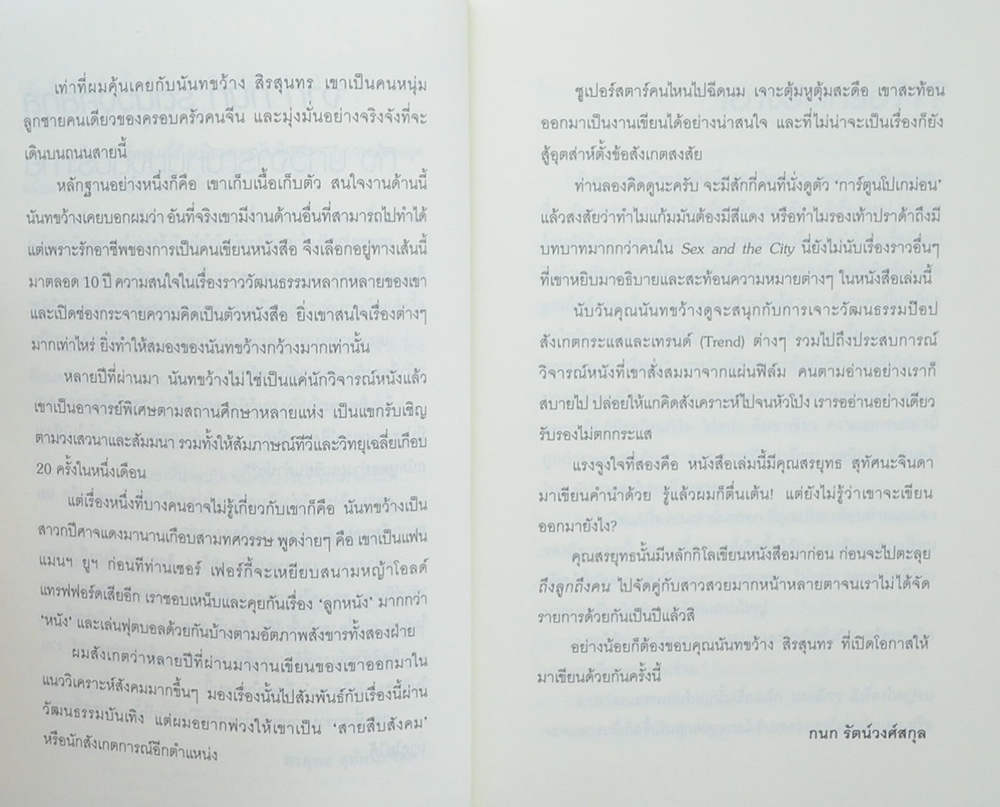 เท่าที่ผมคุ้นเคยกับนันทขว้าง สิรสุนทร เขาเป็นคนหนุ่ม
ลูกชายคนเดียวของครอบครัวคนจีน และมุ่งมั่นอย่างจริงจังที่จะ
เดินบนถนนสายนี้
หลักฐานอย่างหนึ่งก็คือ เขาเก็บเนื้อเก็บตัว สนใจงานด้านนี้
นันทขว้างเคยบอกผมว่า อันที่จริงเขามีงานด้านอื่นที่สามารถไปทำได้
แต่เพราะรักอาชีพของการเป็นคนเขียนหนังสือ จึงเลือกอยู่ทางเส้นนี้
มาตลอด 10 ปี ความสนใจในเรื่องราววัฒนธรรมหลากหลายของเขา
และเปิดช่องกระจายความคิดเป็นตัวหนังสือ ยิ่งเขาสนใจเรื่องต่างๆ
มากเท่าไหร่ ยิ่งทำให้สมองของนันทขว้างกว้างมากเท่านั้น
หลายปีที่ผ่านมา นันทขว้างไม่ใช่เป็นแค่นักวิจารณ์หนังแล้ว
เขาเป็นอาจารย์พิเศษตามสถานศึกษาหลายแห่ง เป็นแขกรับเชิญ
ตามวงเสวนาและสัมมนา รวมทั้งให้สัมภาษณ์ทีวีและวิทยุเฉลี่ยเกือบ
20 ครั้งในหนึ่งเดือน
แต่เรื่องหนึ่งที่บางคนอาจไม่รู้เกี่ยวกับเขาก็คือ นันทขว้างเป็น
สาวกปีศาจแดงมานานเกือบสามทศวรรษ พูดง่ายๆ คือ เขาเป็นแฟน
แมนฯ ยูฯ ก่อนที่ท่านเซอร์ เฟอร์กี้จะเหยียบสนามหญ้าโอลด์
แทรฟฟอร์ดเสียอีก เราชอบเหน็บและคุยกันเรื่อง ‘ลูกหนัง’ มากกว่า
‘หนัง’ และเล่นฟุตบอลด้วยกันบ้างตามอัตภาพสังขารทั้งสองฝ่าย
ผมสังเกตว่าหลายปีที่ผ่านมางานเขียนของเขาออกมาใน
แนววิเคราะห์สังคมมากขึ้นๆ มองเรื่องนั้นไปสัมพันธ์กับเรื่องนี้ผ่าน
วัฒนธรรมบันเทิง แต่ผมอยากพ่วงให้เขาเป็น ‘สายสืบสังคม’
หรือนักสังเกตการณ์อีกตำแหน่ง
ซูเปอร์สตาร์คนไหนไปฉีดนม เจาะตุ้มหูตุ้มสะดือ เขาสะท้อน
ออกมาเป็นงานเขียนได้อย่างน่าสนใจ และที่ไม่น่าจะเป็นเรื่องก็ยัง
สู้อุตส่าห์ตั้งข้อสังเกตสงสัย
ท่านลองคิดดูนะครับ จะมีสักกี่คนที่นั่งดูตัว ‘การ์ตูนโปเกม่อน’
แล้วสงสัยว่าทำไมแก้มมันต้องมีสีแดง หรือทำไมรองเท้าปราด้าถึงมี
บทบาทมากกว่าคนใน Sex and the City นี่ยังไม่นับเรื่องราวอื่นๆ
ที่เขาหยิบมาอธิบายและสะท้อนความหมายต่างๆ ในหนังสือเล่มนี้
นับวันคุณนันทขว้างดูจะสนุกกับการเจาะวัฒนธรรมป๊อป
สังเกตกระแสและเทรนด์ (Trend) ต่างๆ รวมไปถึงประสบการณ์
วิจารณ์หนังที่เขาสั่งสมมาจากแผ่นฟิล์ม คนตามอ่านอย่างเราก็
สบายไป ปล่อยให้แกคิดสังเคราะห์ไปจนหัวโป่ง เรารออ่านอย่างเดียว
รับรองไม่ตกกระแส
แรงจูงใจที่สองคือ หนังสือเล่มนี้มีคุณสรยุทธ สุทัศนะจินดา
มาเขียนคำนำด้วย รู้แล้วผมก็ตื่นเต้น! แต่ยังไม่รู้ว่าเขาจะเขียน
ออกมายังไง?
คุณสรยุทธนั้นมีหลักกิโลเขียนหนังสือมาก่อน ก่อนจะไปตะลุย
ถึงลูกถึงคน ไปจัดคู่กับสาวสวยมากหน้าหลายตาจนเราไม่ได้จัด
รายการด้วยกันเป็นปีแล้วสิ
อย่างน้อยก็ต้องขอบคุณนันทขว้าง สิรสุนทร ที่เปิดโอกาสให้
มาเขียนด้วยกันครั้งนี้
กนก รัตน์วงศ์สกุล